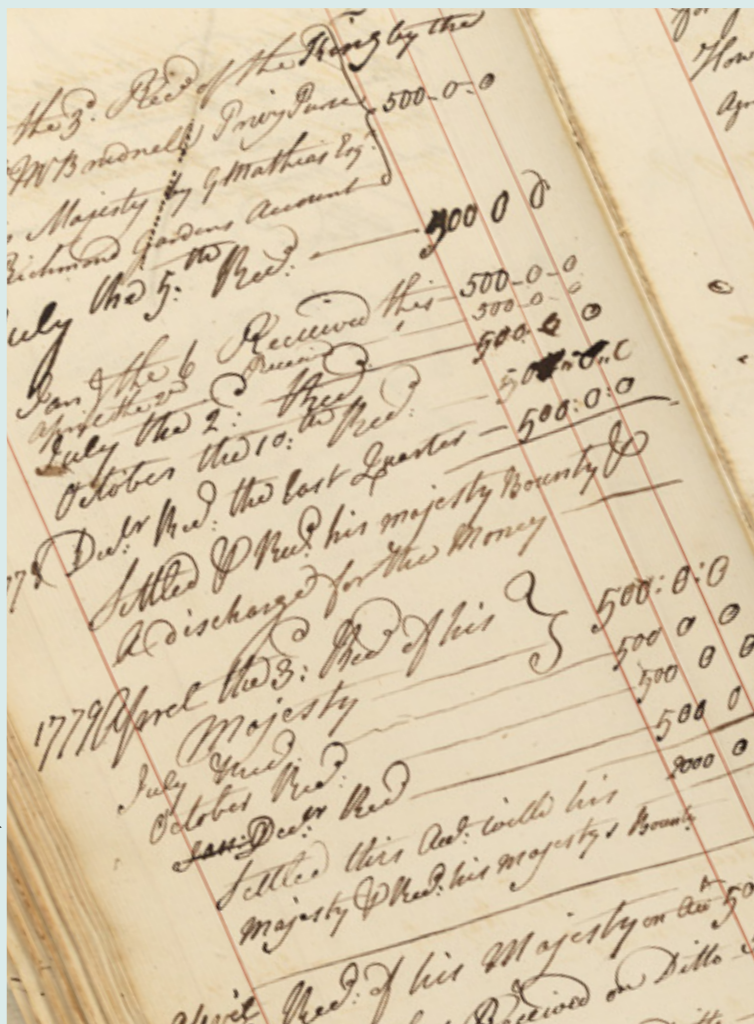 the 3d. Recd of the King by the
Mr Brudnell Privy Purse 500-0-0
Majesty by G Mathias Esqr.
Richmond Gardens Account
July the 5th Recd: 500 0 0
Jany the 6 Received this 500-0-0
April the 2d Received 500-0-0
July the 2d: Recd 500-0-0
October the 10th Recd: 500
Decbr Recd: the last Quarter 500:0:0
Settled & Recd: his majesty Bounty &
A discharge for the Money
1779 April the 3d: Recd of his 500:0:0
Majesty 500 0 0
July Recd: 500 0 0
October Recd: 500 0
Decbr Recd 2000 0
Settled this Acct: with his
Majesty & Recd: his Majestys Bounty
April Recd: of his Majesty on Act 50
Received on Ditto